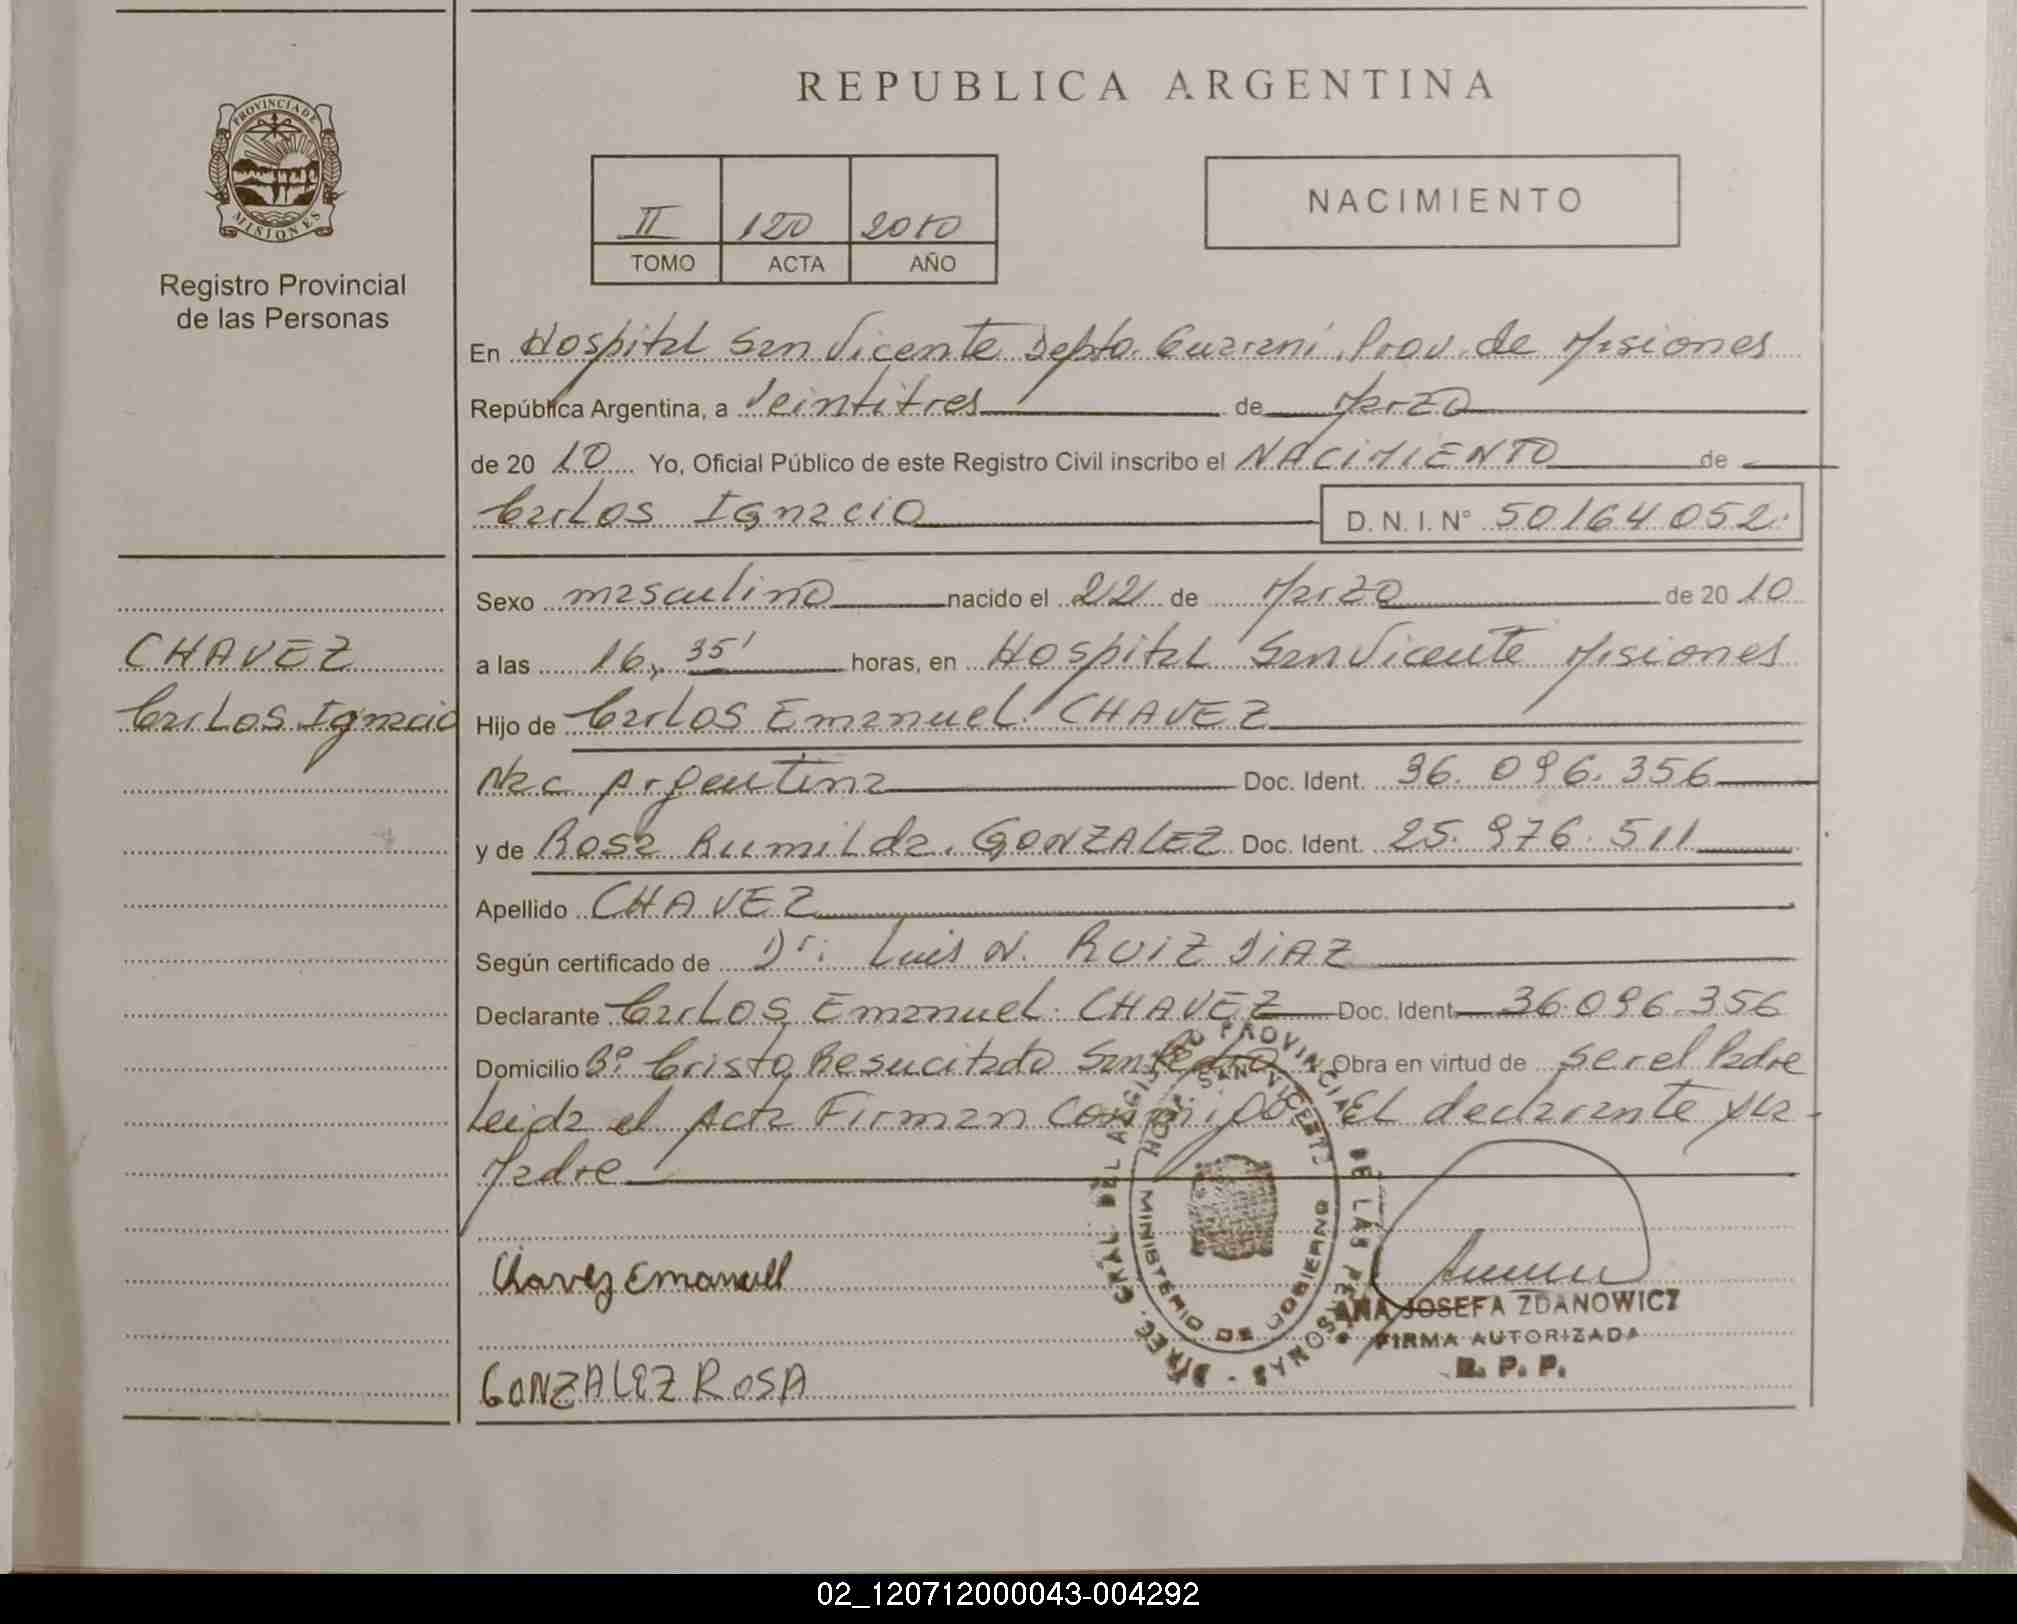 REPUBLICA ARGENTINA
PROVINCIA DE
MISIONES
Registro Provincial
de las Personas
II 120 2010
TOMO ACTA AÑO
NACIMIENTO
En Hospital San Vicente Depto. Guarani. Prov. de Misiones
República Argentina, a Veintitres de Marzo
de 20 10 Yo, Oficial Público de este Registro Civil inscribo el NACIMIENTO de
Carlos Ignacio D. N. I. N° 50164052.
CHAVEZ
Carlos Ignacio
Sexo masculino nacido el 22 de Marzo de 20 10
a las 16, 35' horas, en Hospital San Vicente Misiones
Hijo de Carlos Emanuel. CHAVEZ
Nac Argentina Doc. Ident. 36. 096. 356
y de Rosa Rumilda. GONZALEZ Doc. Ident. 25. 976. 511
Apellido CHAVEZ
Según certificado de Dr. Luis N. RUIZ DIAZ
Declarante Carlos Emanuel. CHAVEZ Doc. Ident 36.096.356
Domicilio Bº. Cristo Resucitado San Pedro Obra en virtud de ser el Padre
Leida el Acta Firman Conmigo El declarante y La
Madre
DIREC. GRAL DEL REGISTRO PROVINCIAL DE LAS PERSONAS
HOSP. SAN VICENTE
MINISTERIO DE GOBIERNO
Chavez Emanuel
ANA JOSEFA ZDANOWICZ
FIRMA AUTORIZADA
R. P. P.
GONZALEZ ROSA
02_120712000043-004292